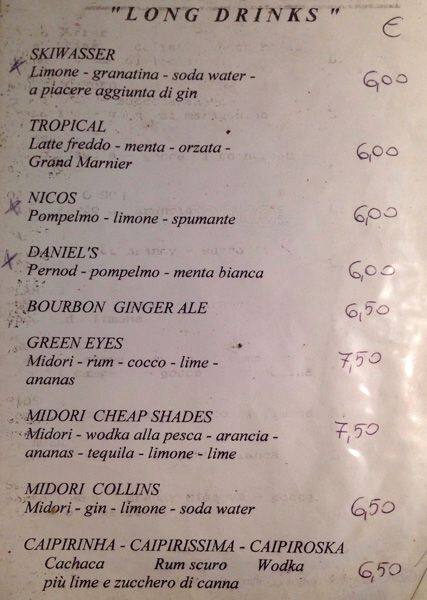 "LONG DRINKS"
€
SKIWASSER
Limone - granatina - soda water -
a piacere aggiunta di gin
6,00
TROPICAL
Latte freddo - menta - orzata -
Grand Marnier
6,00
NICOS
Pompelmo - limone - spumante
6,00
DANIEL'S
Pernod - pompelmo - menta bianca
6,00
BOURBON GINGER ALE
6,50
GREEN EYES
Midori - rum - cocco - lime -
ananas
7,50
MIDORI CHEAP SHADES
Midori - wodka alla pesca - arancia -
ananas - tequila - limone - lime
7,50
MIDORI COLLINS
Midori - gin - limone - soda water
6,50
CAIPIRINHA - CAIPIRISSIMA - CAIPIROSKA
Cachaca Rum scuro Wodka
più lime e zucchero di canna
6,50